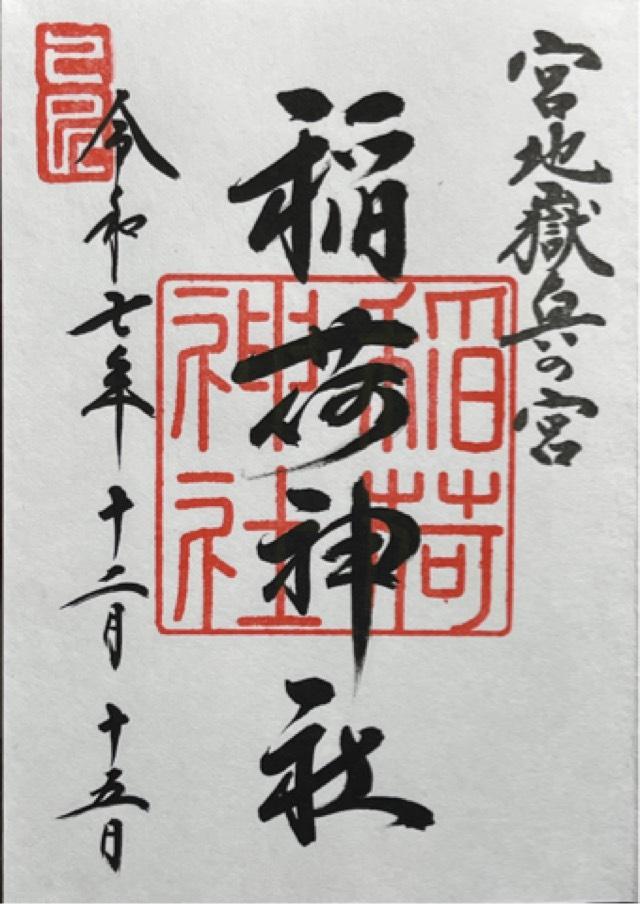 宮地嶽奥の宮
稲荷神社
令和七年 十二月 十五日
稲荷
神社